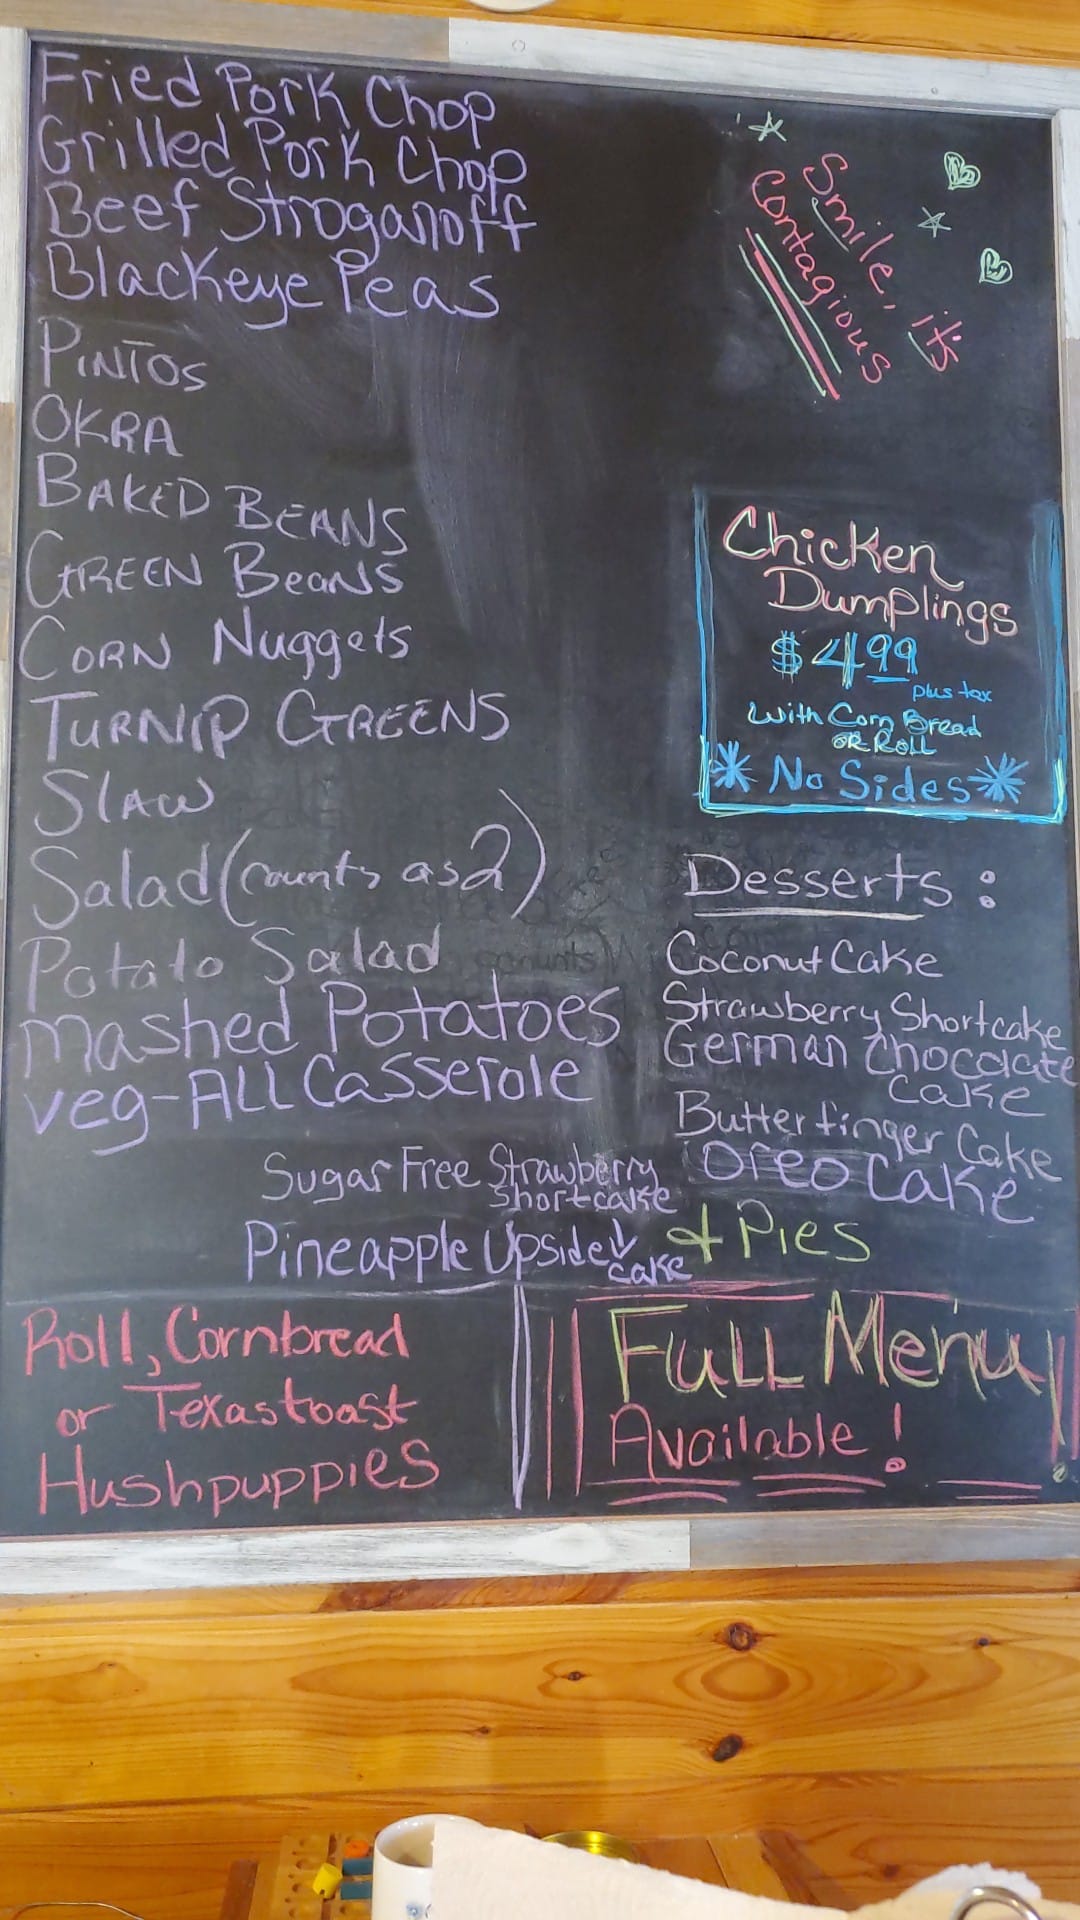 Fried Pork Chop
Grilled Pork Chop
Beef Stroganoff
Blackeye Peas
PINTOS
OKRA
BAKED BEANS
GREEN BeaNS
CORN Nuggets
TURNIP GREENS
SLAW
Salad (counts as 2)
Potato Salad
Mashed Potatoes
Veg-ALL Casserole
Smile, it's
Contagious
Chicken
Dumplings
$4.99
plus tax
With Corn Bread
OR ROLL
* No Sides *
Desserts :
Coconut Cake
Strawberry Shortcake
German Chocolate
Cake
Butterfinger Cake
Oreo Cake
Sugar Free Strawberry
Shortcake
Pineapple Upside↓
cake
+ Pies
Roll, Cornbread
or Texas toast
Hushpuppies
FULL Menu
Available!